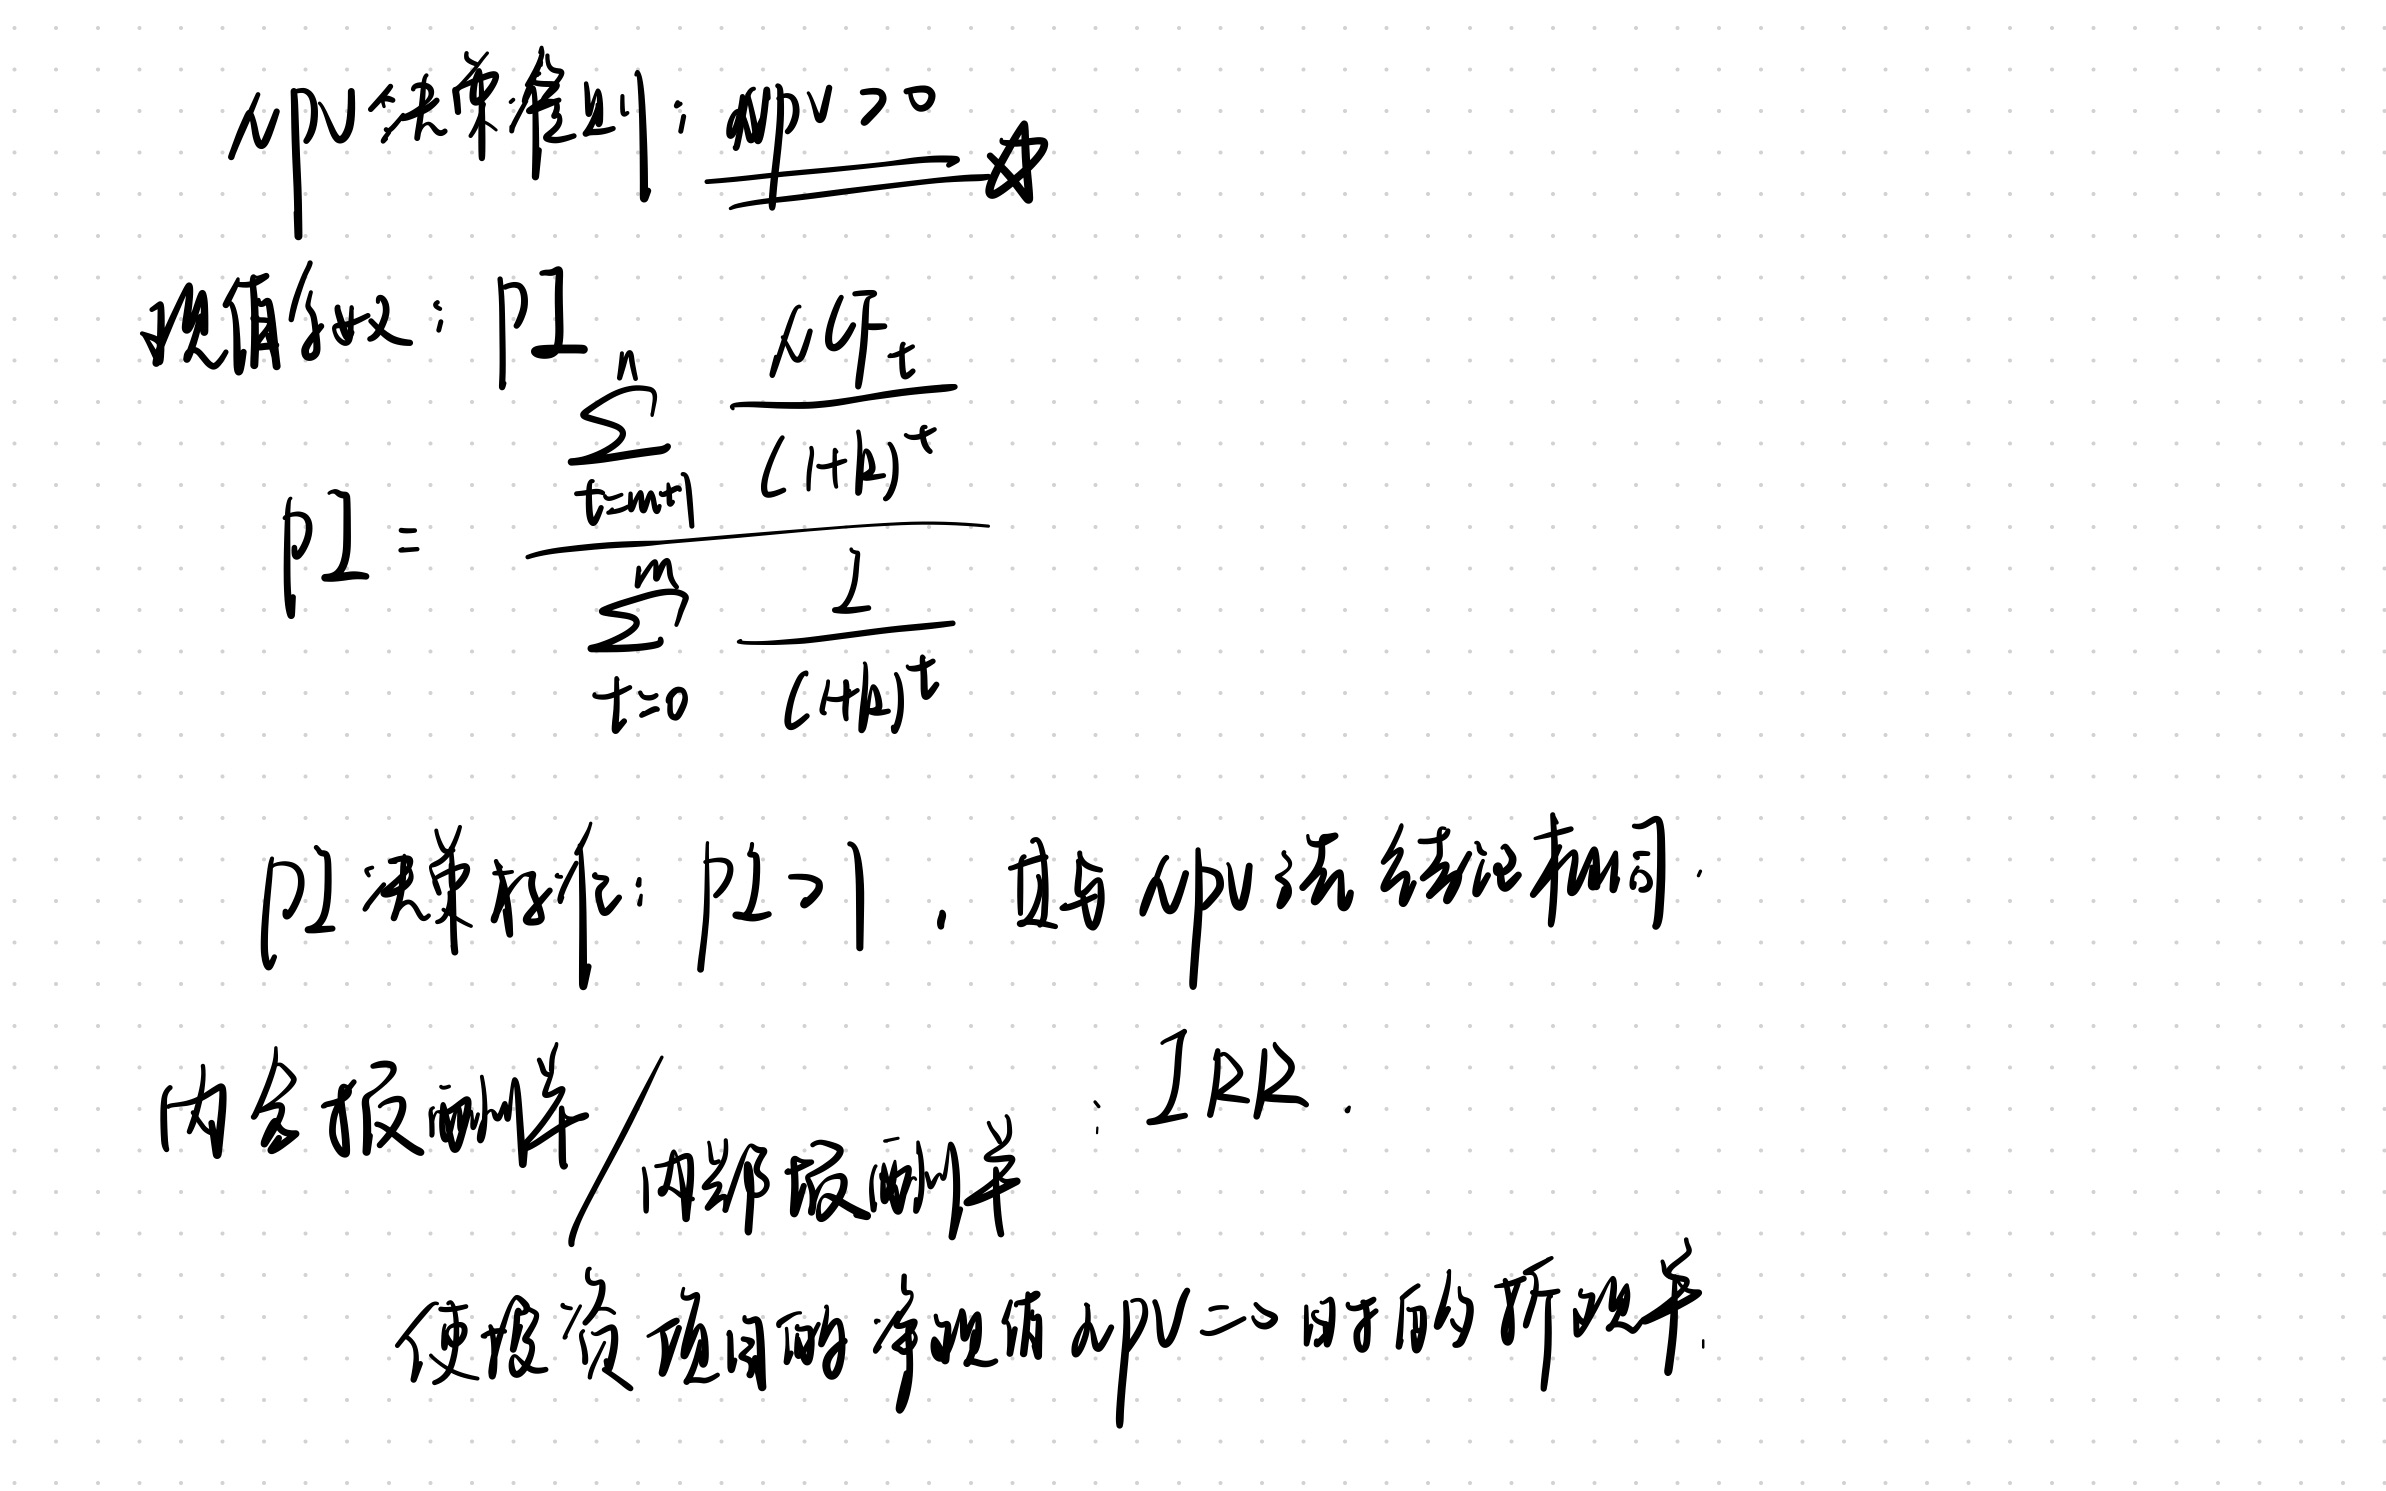 NPV决策准则：NPV>0
现值指数：PI
PI = \frac{\sum_{t=m+1}^{n} \frac{NCF_t}{(1+k)^t}}{\sum_{t=0}^{m} \frac{I}{(1+k)^t}}
PI决策标准：PI>1，其与NPV法结论相同.
内含报酬率/内部报酬率：IRR.
使投资项目的净现值NPV=0时的折现率.